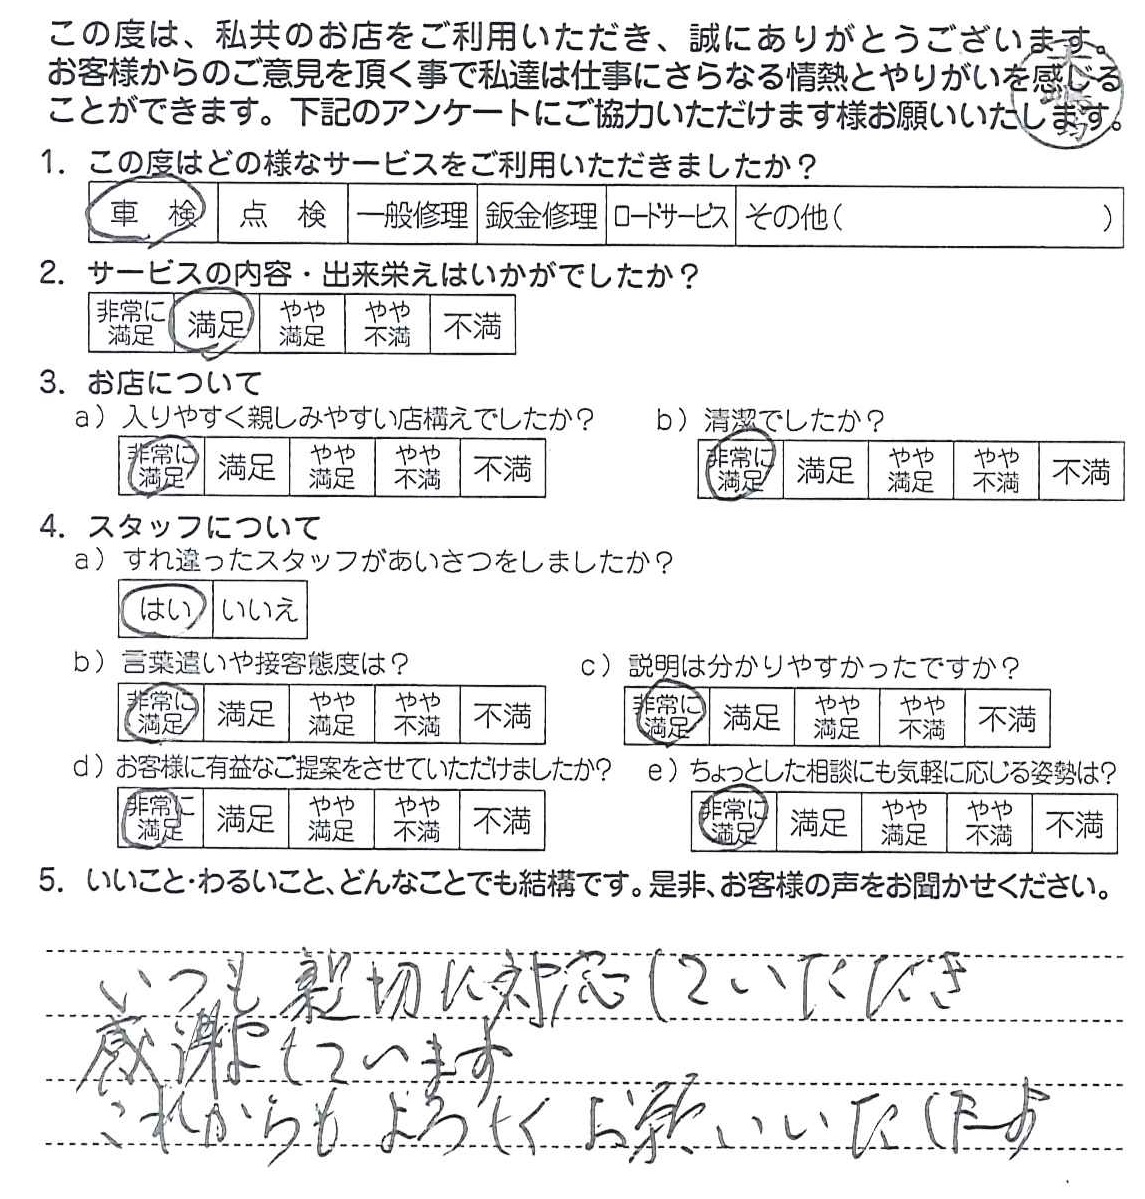 この度は、私共のお店をご利用いただき、誠にありがとうございます。
お客様からのご意見を頂く事で私達は仕事にさらなる情熱とやりがいを感じる
ことができます。下記のアンケートにご協力いただけます様お願いいたします。
1. この度はどの様なサービスをご利用いただきましたか？
車　検 点　検 一般修理 鈑金修理 ロードサービス その他（　　　）
2. サービスの内容・出来栄えはいかがでしたか？
非常に満足 満足 やや満足 やや不満 不満
3. お店について
a）入りやすく親しみやすい店構えでしたか？ b）清潔でしたか？
非常に満足 満足 やや満足 やや不満 不満 非常に満足 満足 やや満足 やや不満 不満
4. スタッフについて
a）すれ違ったスタッフがあいさつをしましたか？
はい いいえ
b）言葉遣いや接客態度は？ c）説明は分かりやすかったですか？
非常に満足 満足 やや満足 やや不満 不満 非常に満足 満足 やや満足 やや不満 不満
d）お客様に有益なご提案をさせていただけましたか？ e）ちょっとした相談にも気軽に応じる姿勢は？
非常に満足 満足 やや満足 やや不満 不満 非常に満足 満足 やや満足 やや不満 不満
5. いいこと・わるいこと、どんなことでも結構です。是非、お客様の声をお聞かせください。
いつも親切に対応していただき
感謝しています
これからもよろしくお願いいたします